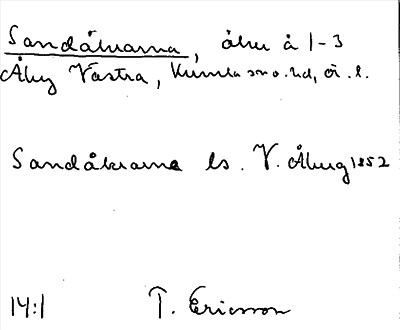 Sandåkrarna, åker å 1-3
Åby Västra, Kumla sn o. hd, ör. l.
Sandåkrarne ls. V. Åberg 1852
14:1 T. Ericsson